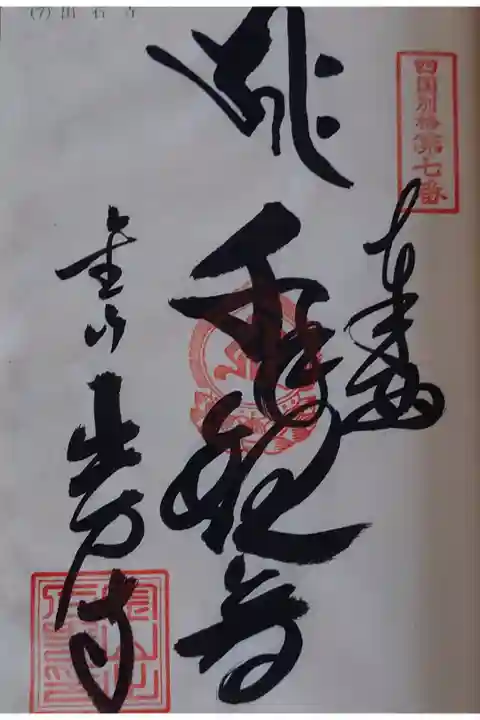 四国別格第七番
奉納
千手観音
金山 出石寺
(7)出石寺